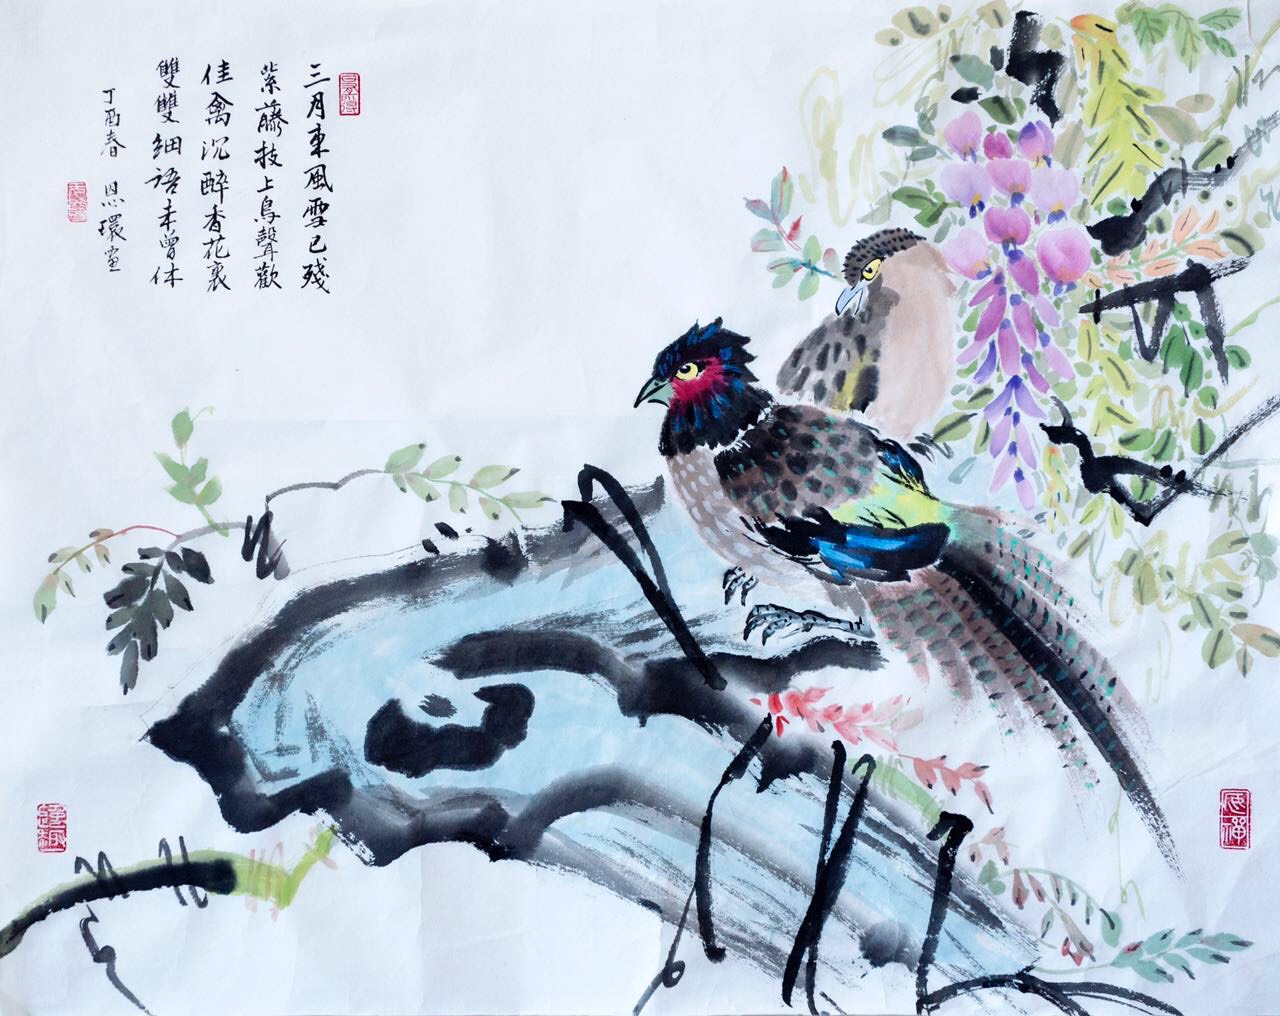 三月東風雪已殘
紫藤技上鳥聲歡
佳禽沉醉香花裏
雙雙細語未曾休
丁酉春 恩環畫